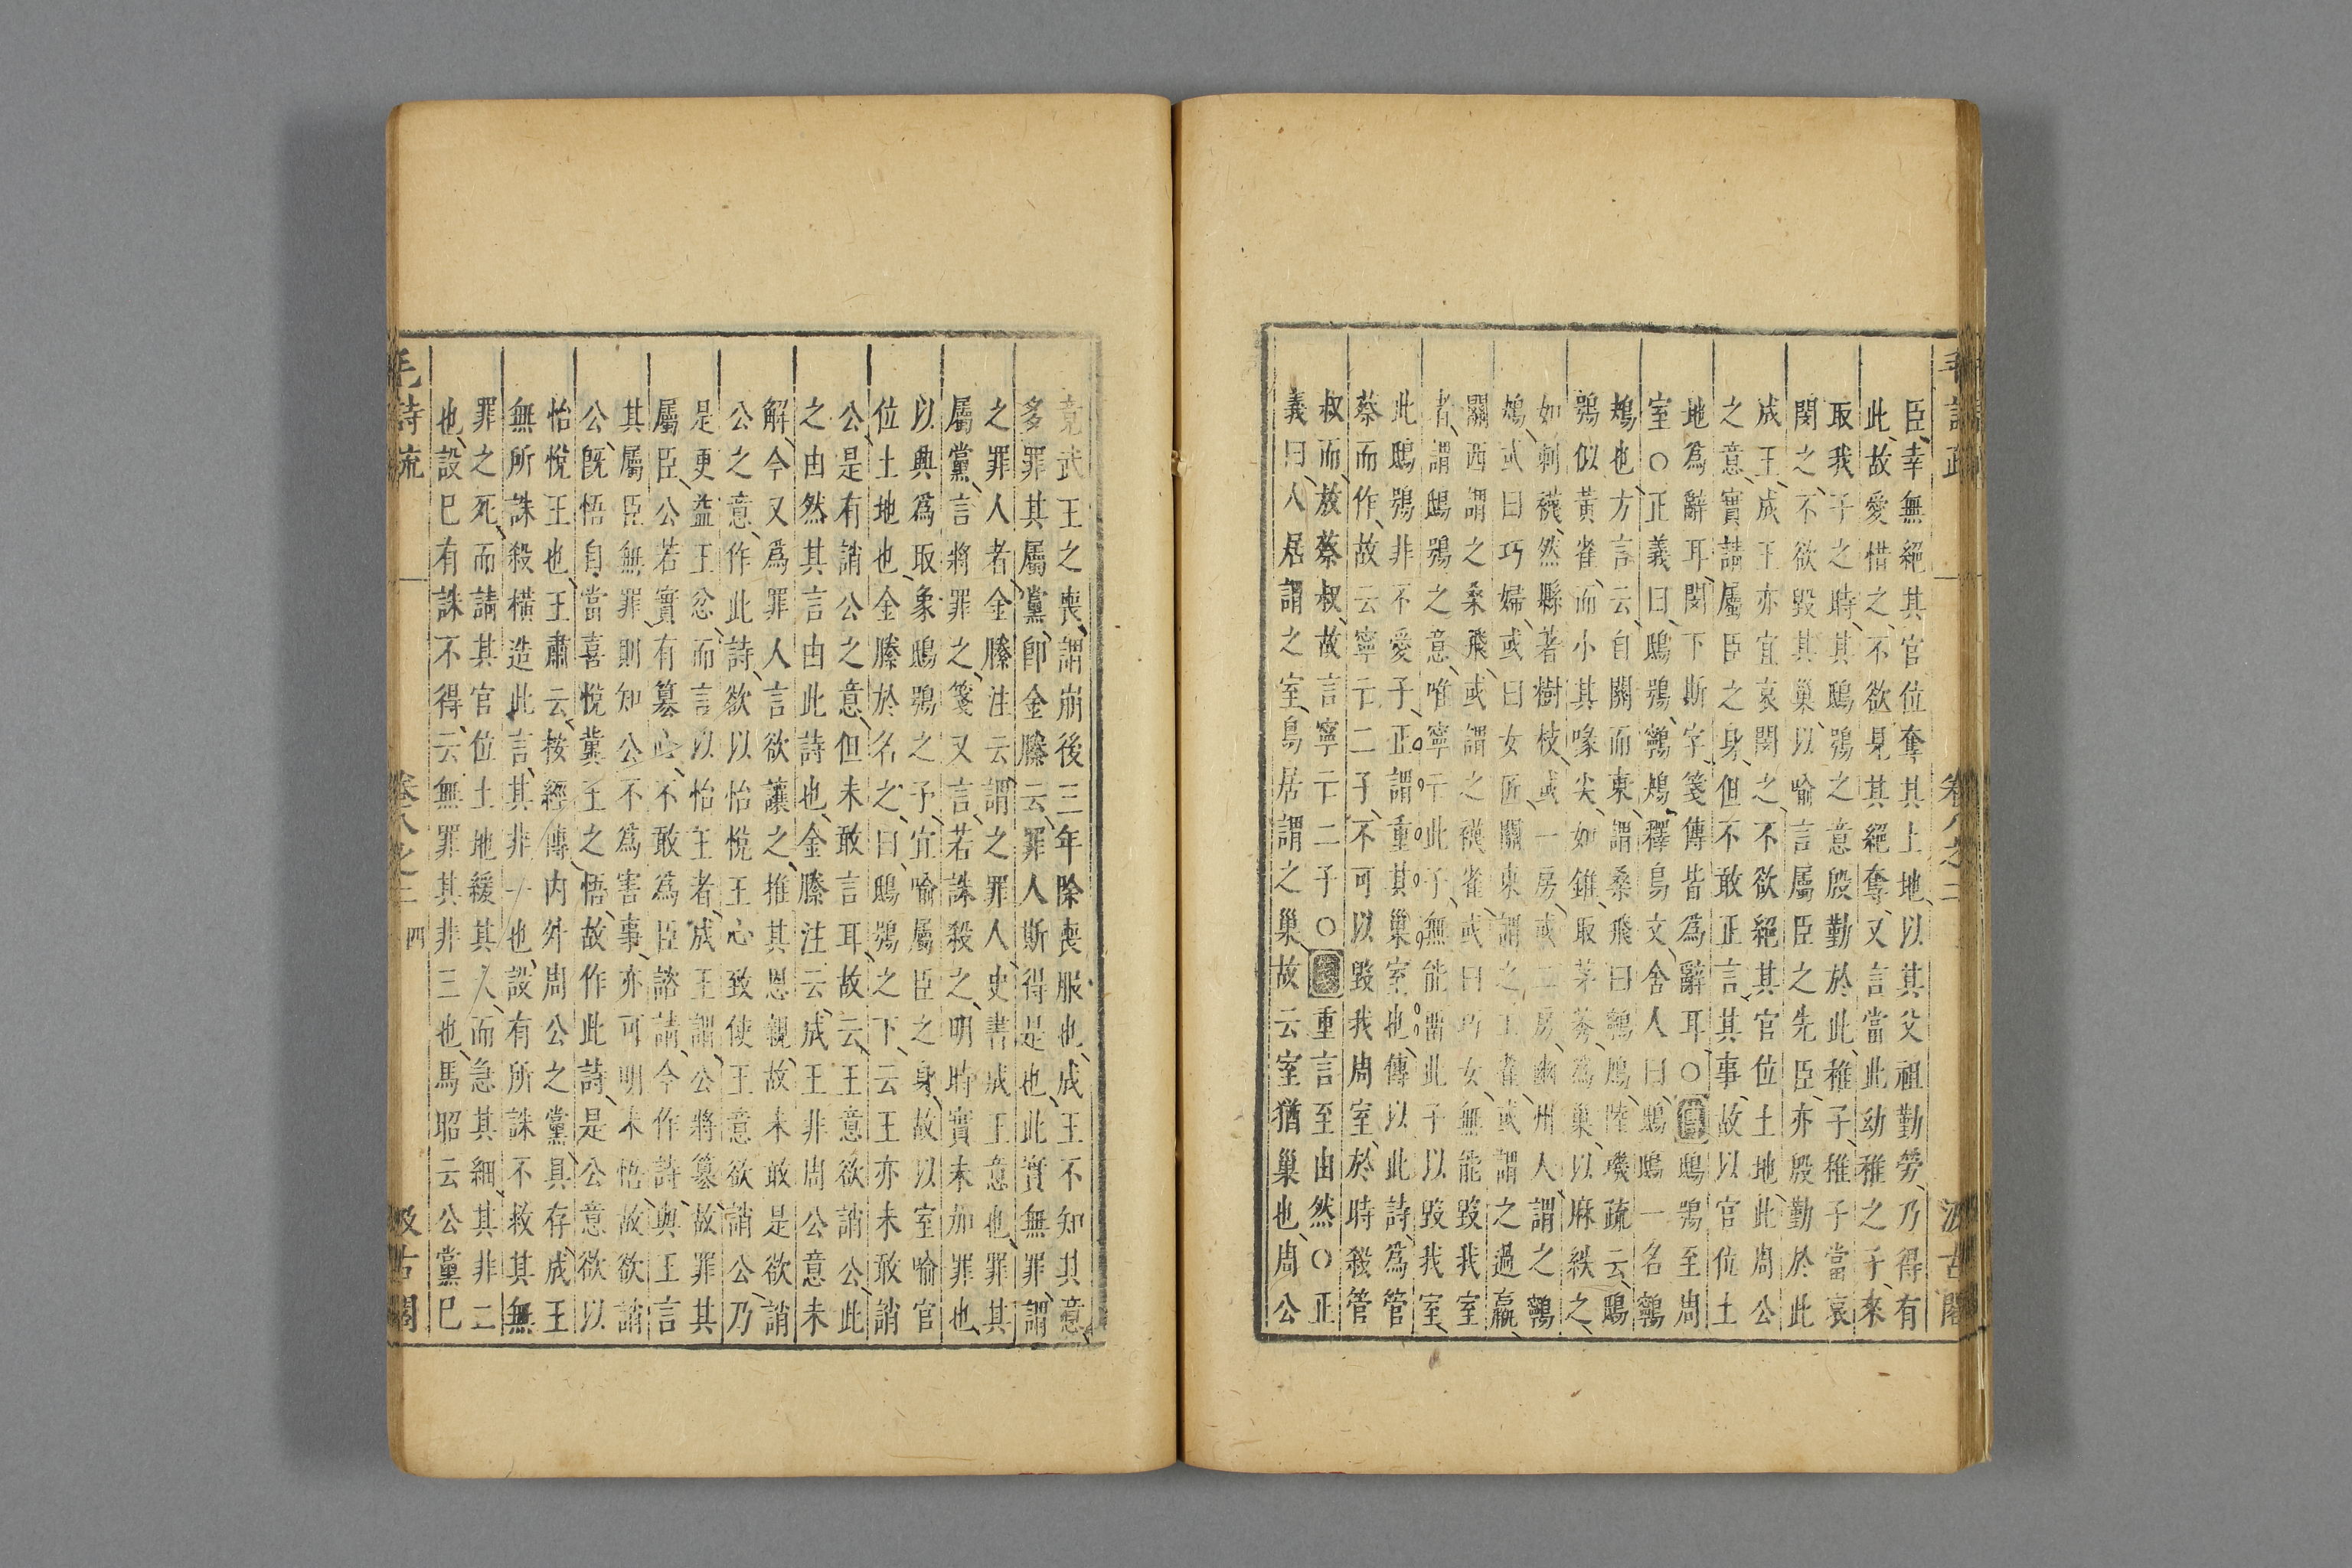 毛詩疏 卷八之二 汲古閣
臣幸無絕其官位奪其土地以其父祖勤勞乃得有
此故愛惜之不欲見其絕奪又言當此幼稚之子來
取我子之時其鴟鴞之意殷勤於此稚子稚子當哀
閔之不欲毀其巢以喻言屬臣之先臣亦殷勤於此
成王成王亦宜哀閔之不欲絕其官位土地此周公
之意實請屬臣之身但不敢正言其事故以官位土
地為辭耳閔下斯字箋傳皆為辭耳○傳鴟鴞至周
室○正義曰鴟鴞鸋鴂釋鳥文舍人曰鴟鴞一名鸋
鴂也方言云自關而東謂桑飛曰鸋鴂陸璣疏云鴟
鴞似黃雀而小其喙尖如錐取茅莠為巢以麻紩之
如刺襪然縣著樹枝或一房或二房幽州人謂之鸋
鴂或曰巧婦或曰女匠關東謂之工雀或謂之過羸
關西謂之桑飛或謂之襪雀或曰巧女無能毀我室
者謂鴟鴞之意唯寧亡此子無能留此子以毀我室
此鴟鴞非不愛子正謂重其巢室也傳以此詩為管
蔡而作故云寧亡二子不可以毀我周室於時殺管
叔而放蔡叔故言寧亡二子○箋重言至由然○正
義曰人居謂之室鳥居謂之巢故云室猶巢也周公
竟武王之喪謂崩後三年除喪服也成王不知其意
多罪其屬黨卽金縢云罪人斯得是也此實無罪謂
之罪人者金縢注云謂之罪人史書成王意也罪其
屬黨言將罪之箋又言若誅殺之明時實未加罪也
以興為取象鴟鴞之子宜喻屬臣之身故以室喻官
位土地也金縢於名之曰鴟鴞之下云王亦未敢誚
公是有誚公之意但未敢言耳故云王意欲誚公此
之由然其言由此詩也金縢注云成王非周公意未
解今又為罪人言欲讓之推其恩親故未敢是欲誚
公之意作此詩欲以怡悅王心致使王意欲誚公乃
是更益王忿而言以怡王者成王謂公將篡故罪其
屬臣公若實有篡心不敢為臣諮請今作詩與王言
其屬臣無罪則知公不為害事亦可明未悟故欲誚
公既悟自當喜悅冀王之悟故作此詩是公意欲以
怡悅王也王肅云按經傳內外周公之黨具存成王
無所誅殺橫造此言其非一也設有所誅不救其無
罪之死而請其官位土地緩其人而急其細其非二
也設巳有誅不得云無罪其非三也馬昭云公黨巳
毛詩疏 卷八之二 四 汲古閣